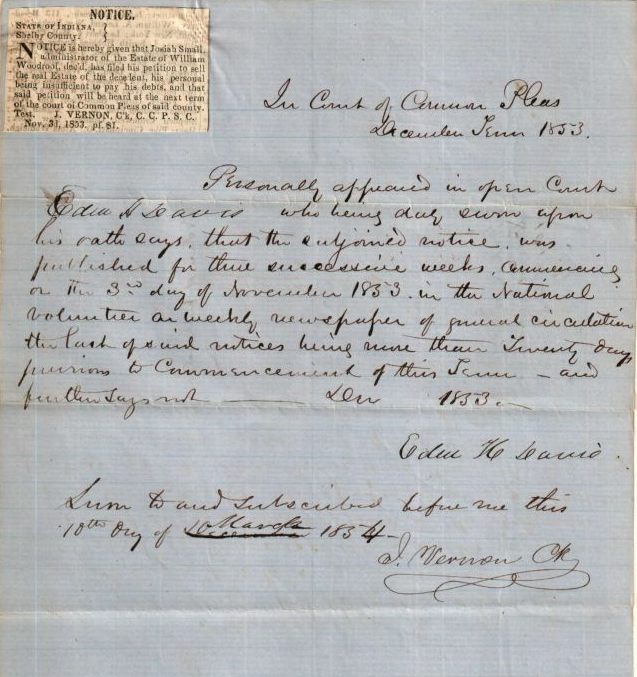 NOTICE.
STATE OF INDIANA, }
Shelby County. }
NOTICE is hereby given that Josiah Small,
administrator of the Estate of William
Woodroof, dec'd, has filed his petition to sell
the real Estate of the decedent, his personal
being insufficient to pay his debts, and that
said petition will be heard at the next term
of the court of Common Pleas of said county.
Test. J. VERNON, C'k, C. C. P. S. C.
Nov. 3d, 1853. pf. $1.
In Court of Common Pleas
December Term 1853.
Personally appeared in open Court
Eden H Davis who being duly sworn upon
his oath says, that the subjoined notice, was
published for three successive weeks, commencing
on the 3rd day of November 1853. in the National
volunteer a weekly newspaper of general circulation
the last of said notices being more than Twenty days
previous to Commencement of this Term - and
further says not Dec 1853.
Eden H Davis.
Sworn to and subscribed before me this
10th Day of March 1854
J. Vernon Ck